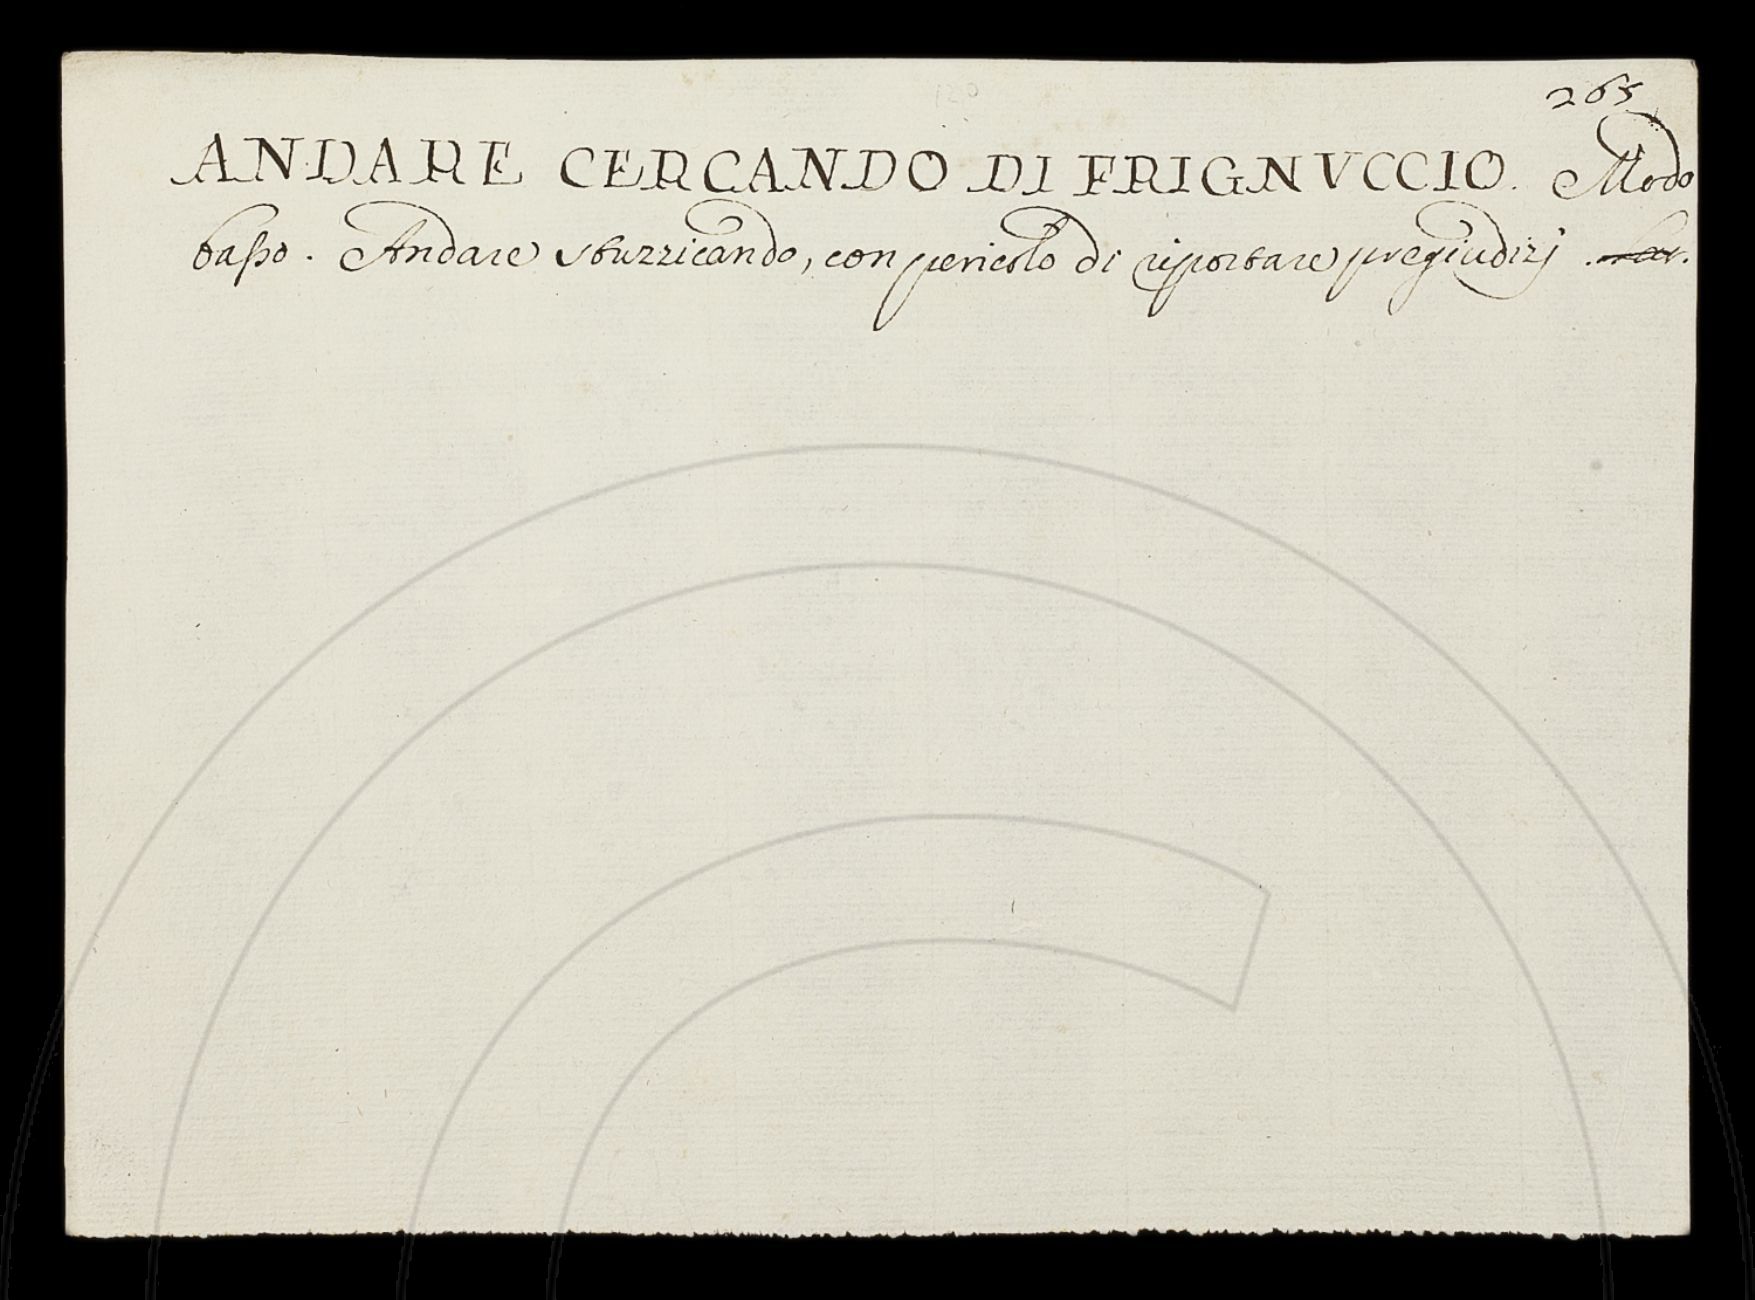 265
ANDARE CERCANDO DI FRIGNVCCIO. Modo
basso. Andare stuzzicando, con pericolo di riportare pregiudizj.